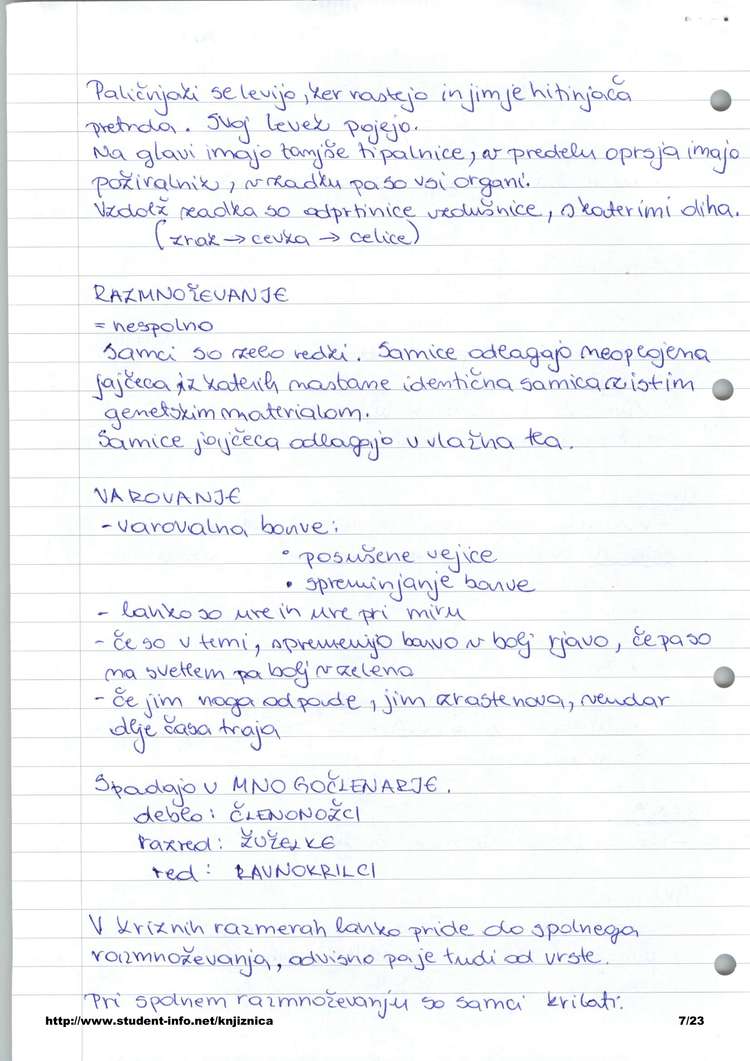 Paličnjaki se levijo, ker rastejo in jim je hitinjača
pretrda. Svoj levek pojejo.
Na glavi imajo tanjše tipalnice, v predelu oprsja imajo
požiralnik, v zadku pa so vsi organi.
Vzdolž zadka so odprtinice vzdušnice, s katerimi diha.
(zrak → cevka → celice)
RAZMNOŽEVANJE
= nespolno
Samci so zelo redki. Samice odlagajo neoplojena
jajčeca iz katerih nastane identična samica z istim
genetskim materialom.
Samice jajčeca odlagajo v vlažna tla.
VAROVANJE
- varovalna barve:
• posušene vejice
• spreminjanje barve
- lahko so ure in ure pri miru
- če so v temi, spremenijo barvo v bolj rjavo, če pa so
na svetlem pa bolj v zeleno
- če jim noga odpade, jim zraste nova, vendar
dlje časa traja
Spadajo v MNOGOČLENARJE.
deblo: ČLENONOŽCI
razred: ŽUŽELKE
red: RAVNOKRILCI
V kriznih razmerah lahko pride do spolnega
razmnoževanja, odvisno pa je tudi od vrste.
Pri spolnem razmnoževanju so samci krilati.
http://www.student-info.net/knjiznica 7/23